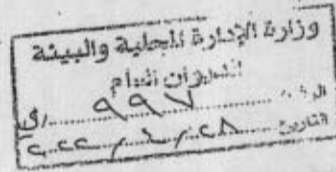 وزارة الإدارة المحلية والبيئة
الديوان العام
الرقم ٩٩٧
التاريخ ٢٨ / ٤ / ٢٠٢٢